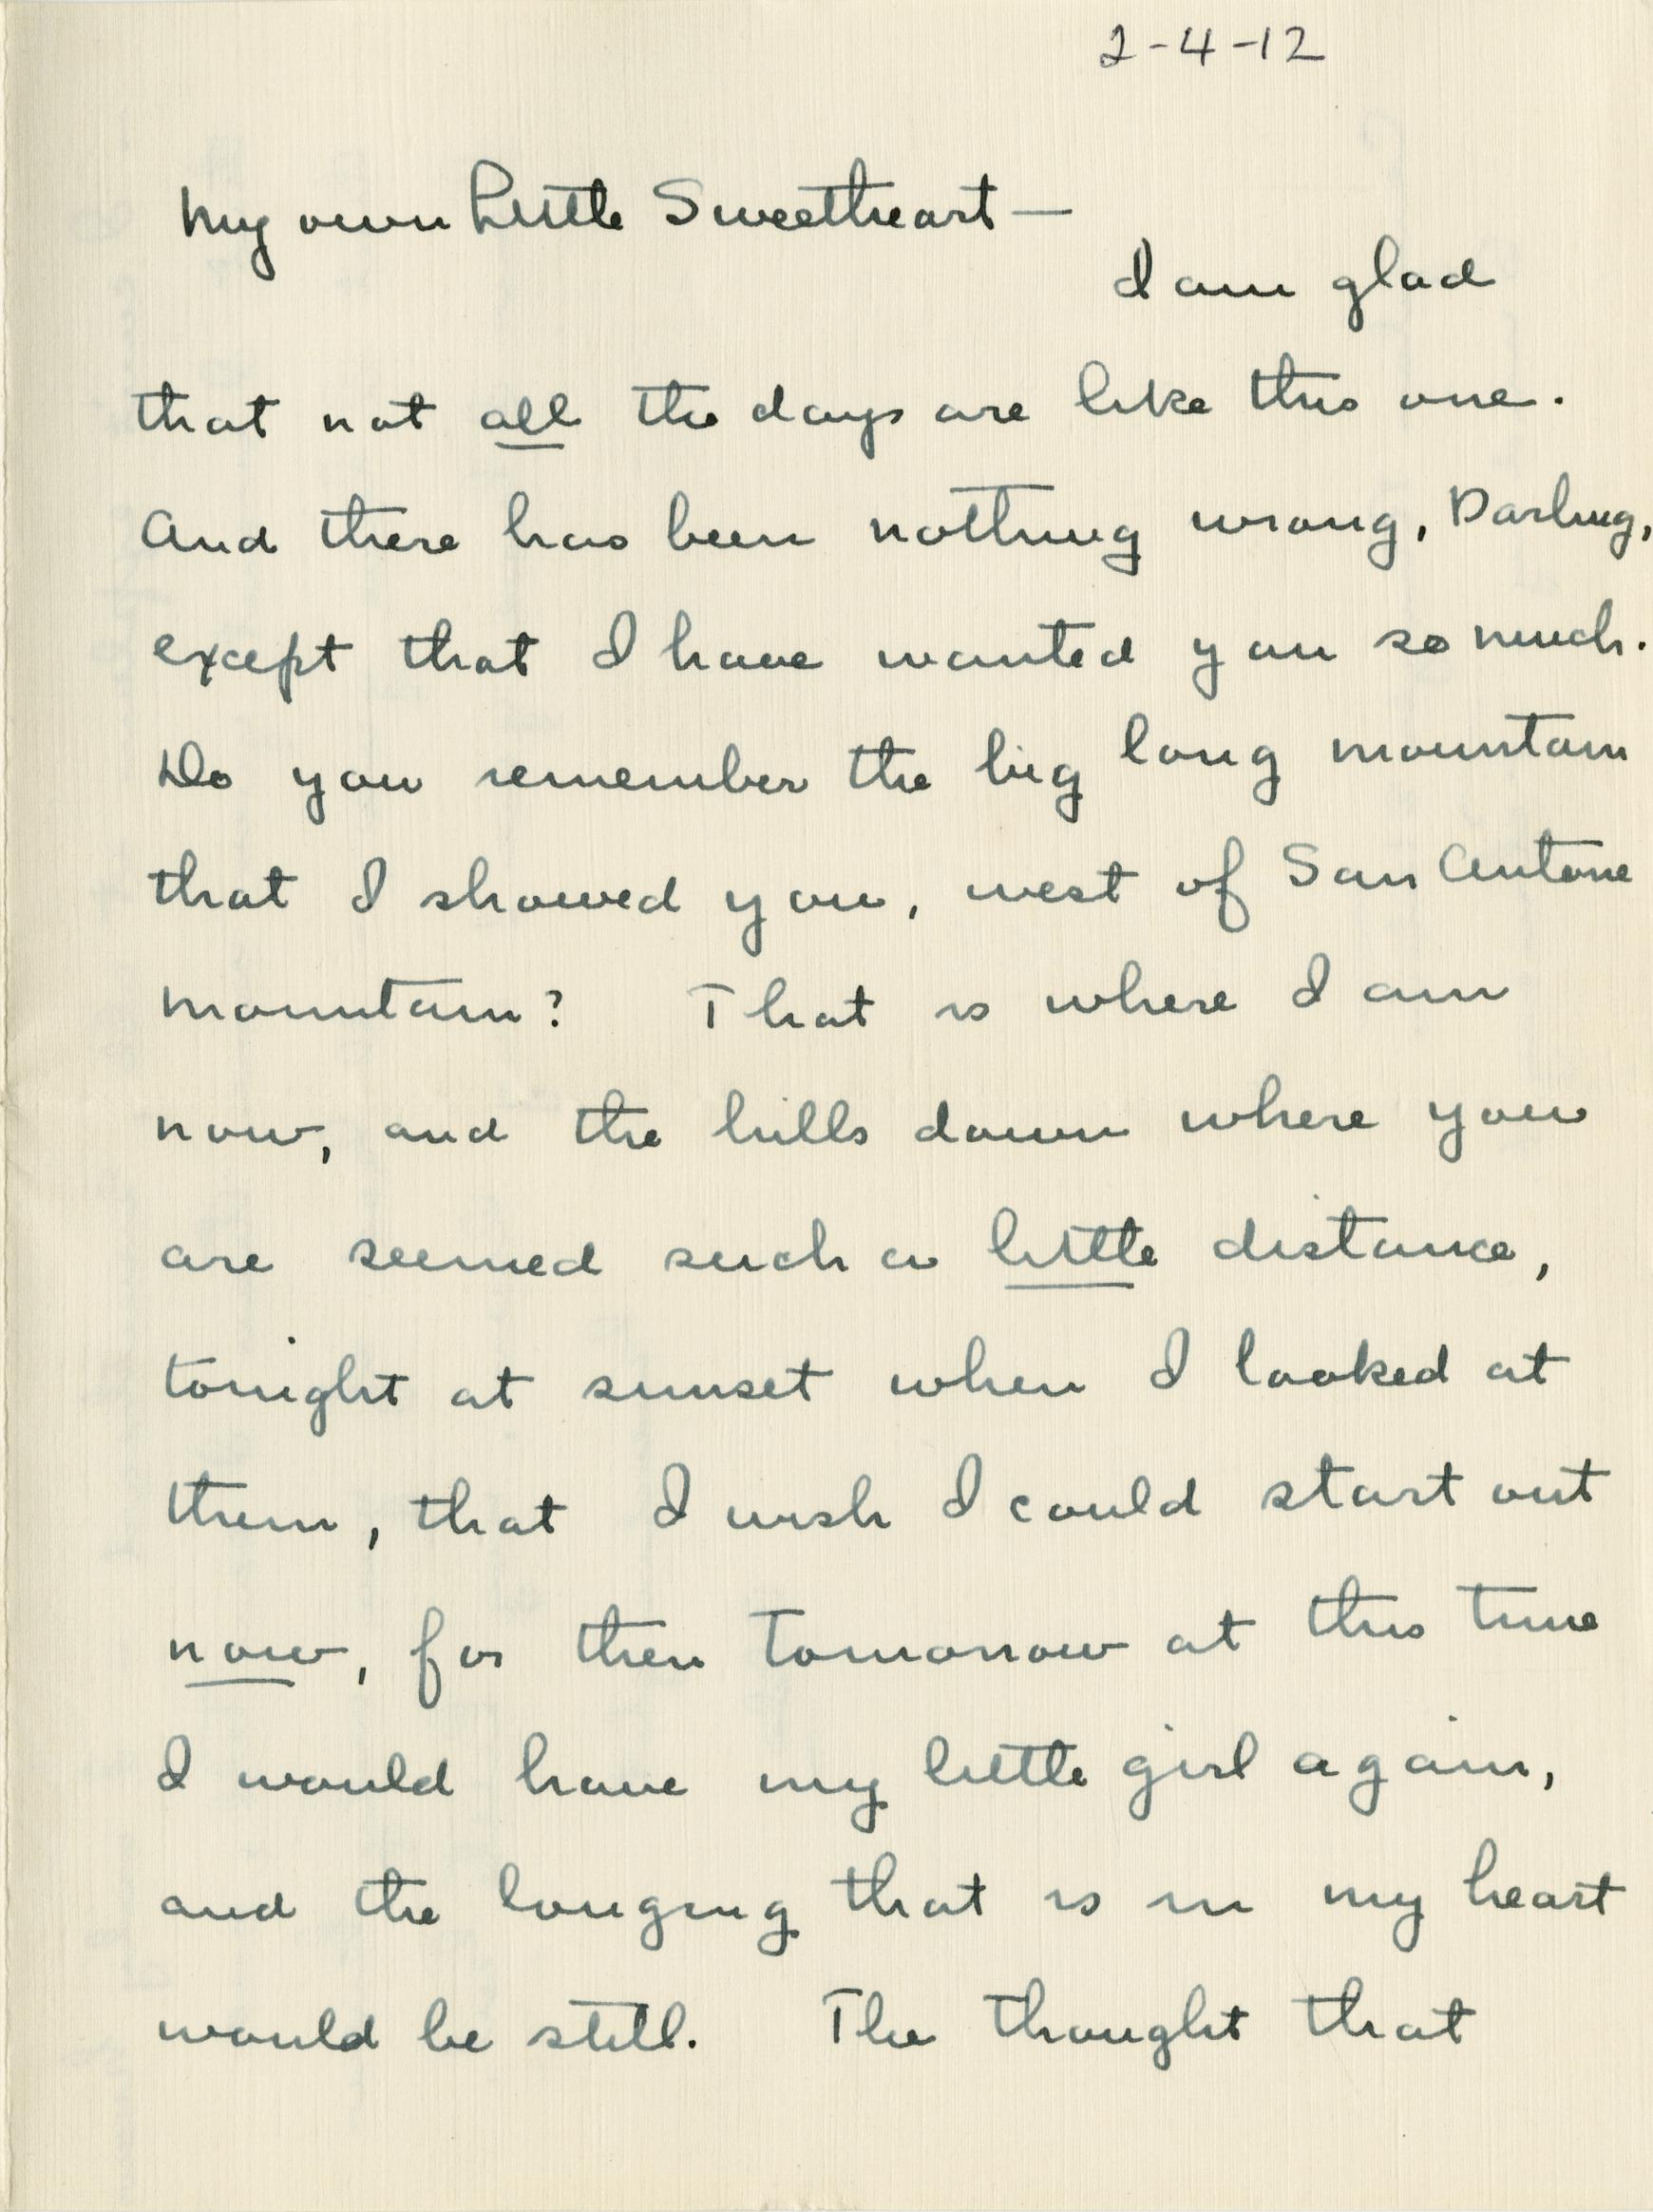 2-4-12
My own Little Sweetheart —
I am glad
that not all the days are like this one.
And there has been nothing wrong, Darling,
except that I have wanted you so much.
Do you remember the big long mountain
that I showed you, west of San Antone
mountain? That is where I am
now, and the hills down where you
are seemed such a little distance,
tonight at sunset when I looked at
them, that I wish I could start out
now, for then tomorrow at this time
I would have my little girl again,
and the longing that is in my heart
would be still. The thought that